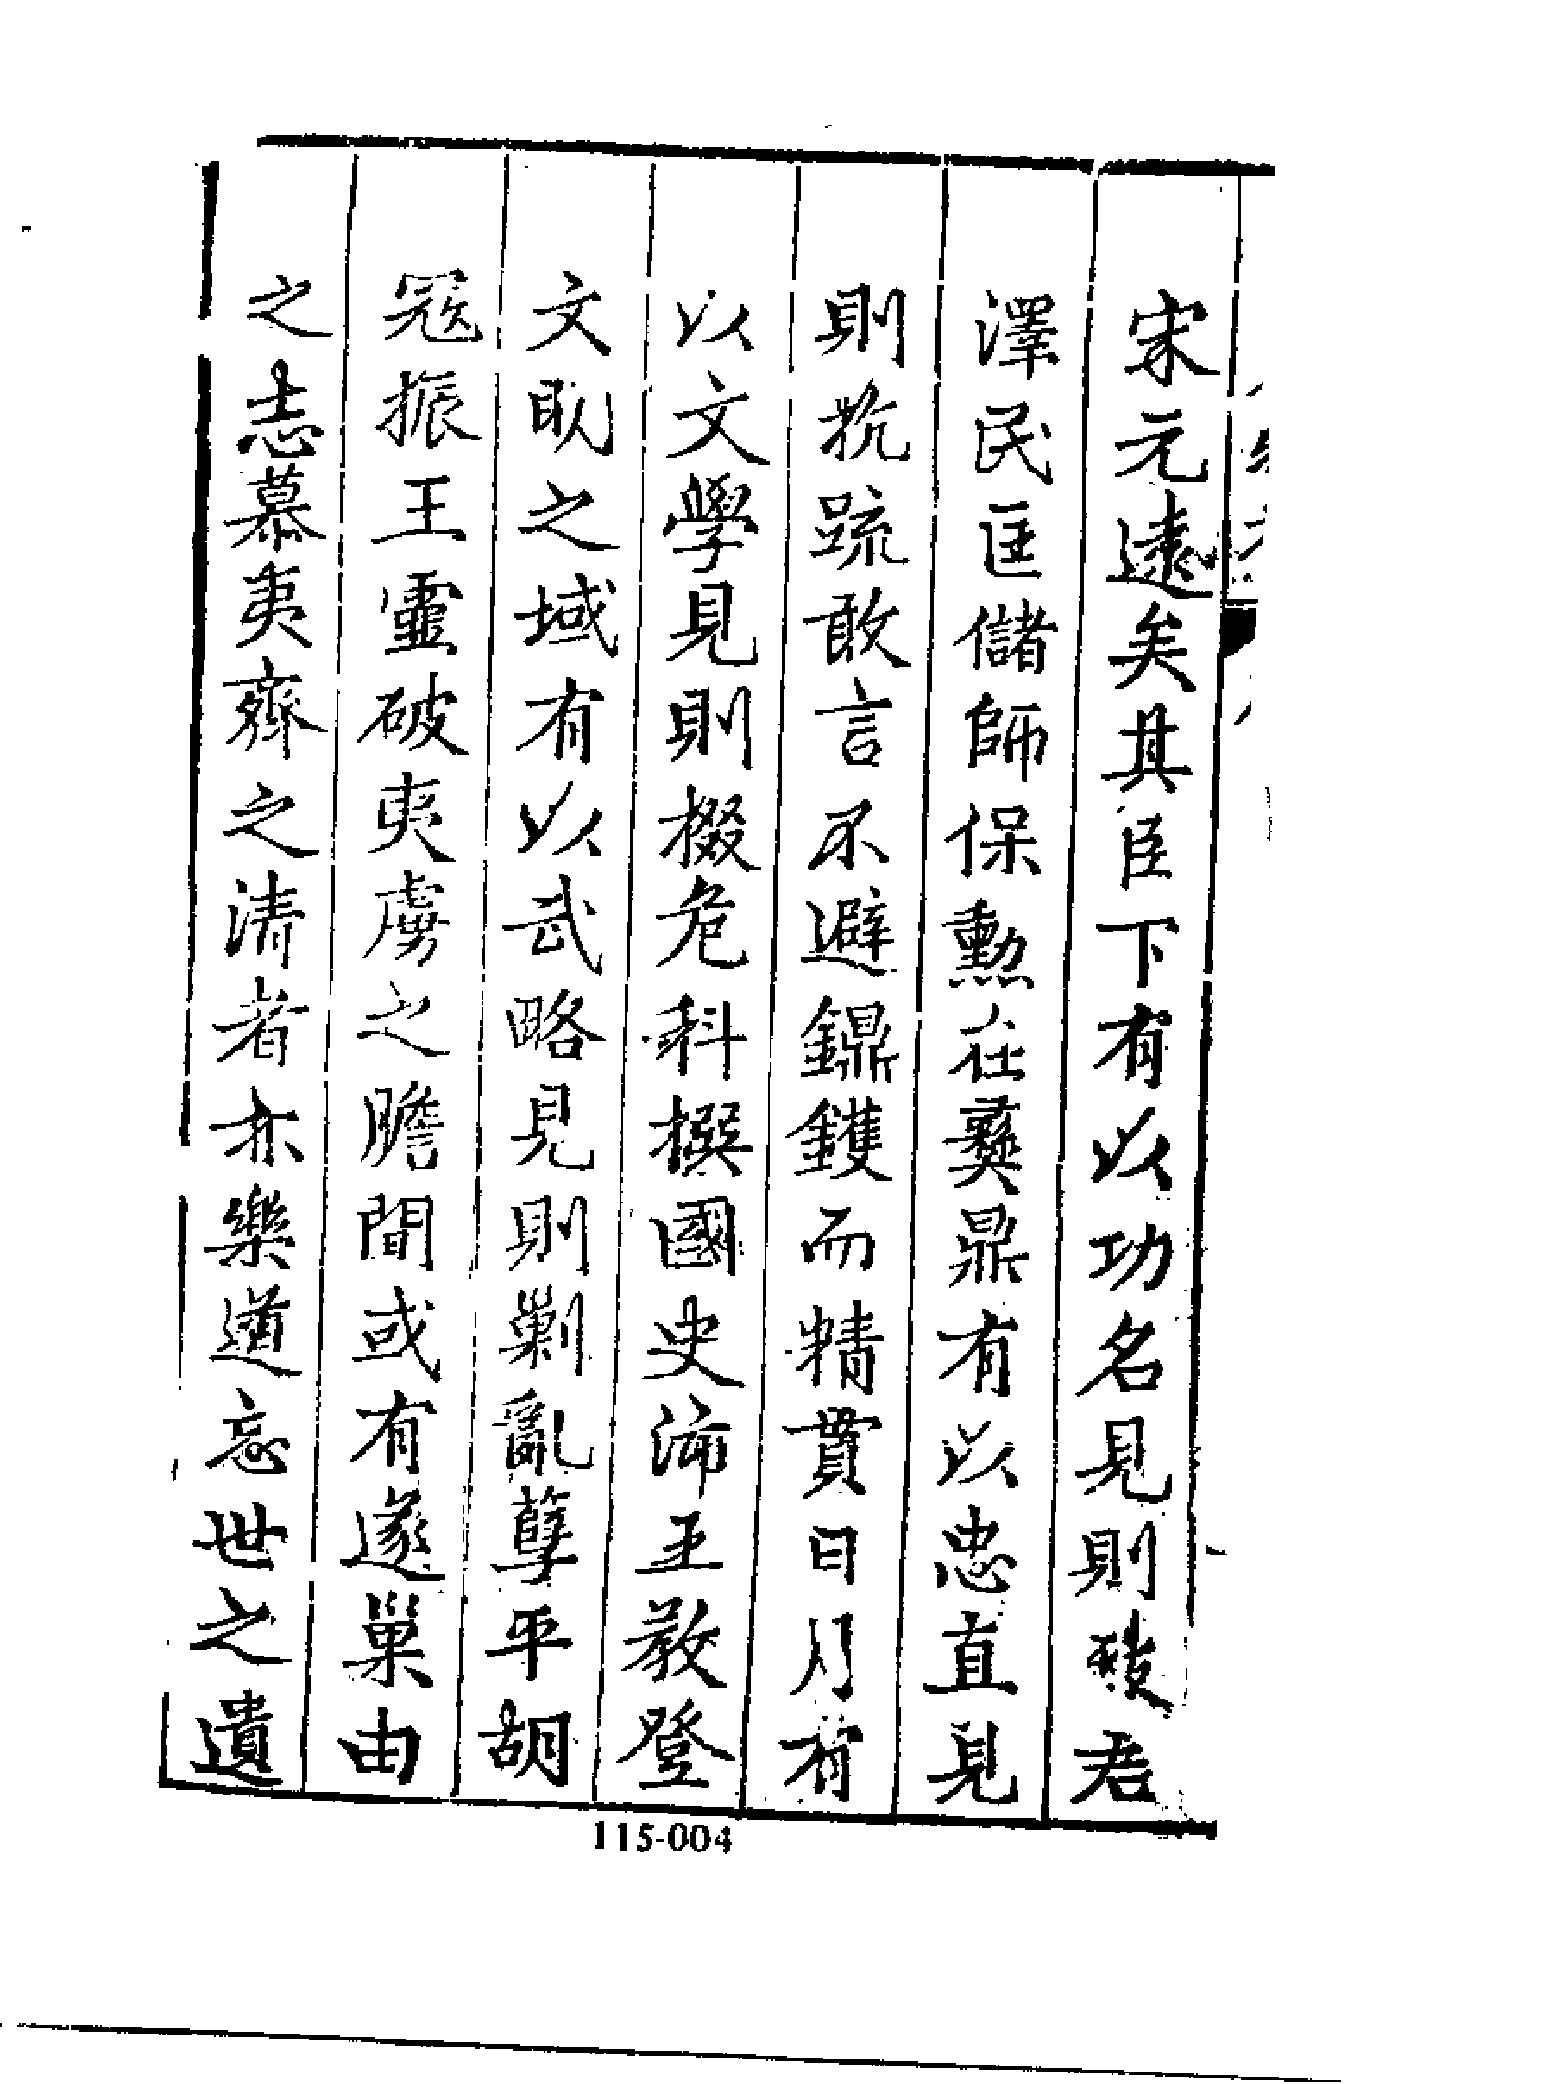 宋元遠矣其臣下有以功名見則致君
澤民匡儲師保勲在彞鼎有以忠直見
則抗疏敢言不避鐤鑊而精貫日月有
以文學見則掇危科撰國史沛王教登
文貺之域有以武略見則剿亂孽平胡
冦振王靈破夷虜之膽間或有遂巢由
之志慕夷齊之清者亦樂道忘世之遺
115-004